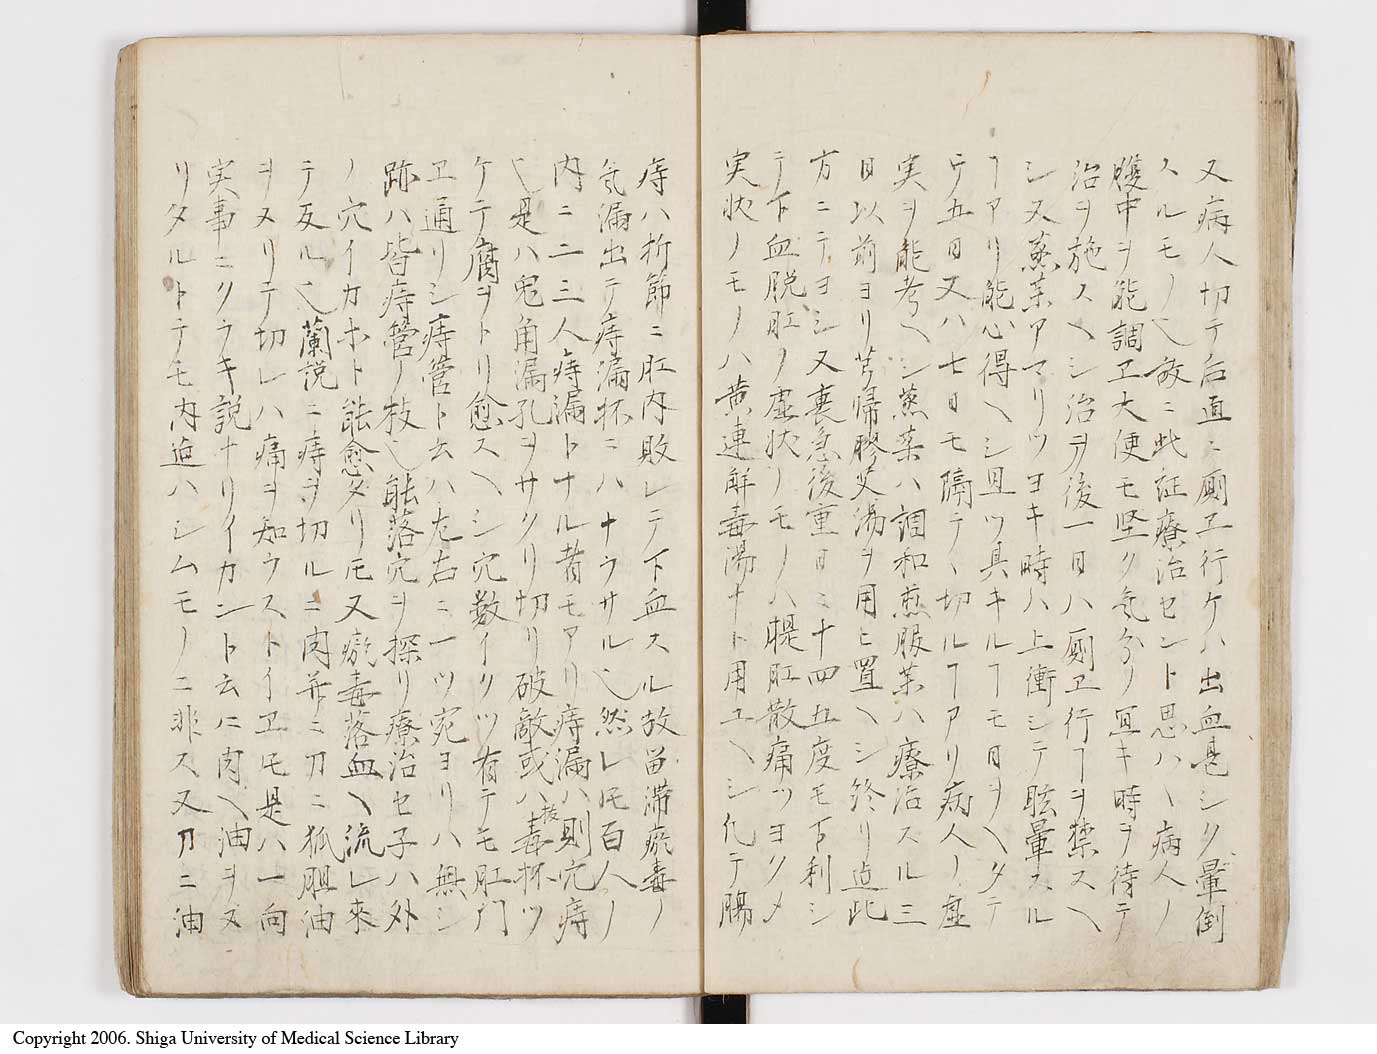 又病人切テ后直ニ厠ヱ行ケハ出血甚シク暈倒
スルモノ也故ニ此証療治セント思ハヽ病人ノ
腹中ヲ能調ヱ大便モ坚ク気分リ宜キ時ヲ待テ
治ヲ施スヘシ治ヲ後一日ハ厠ヱ行ヿヲ禁スヘ
シ又蒸薬アマリツヨキ時ハ上衝シテ眩暈スル
ヿアリ能心得ヘシ且ツ具キルヿモ日ヲヘタテ
テ五日又ハ七日モ隔テヽ切ルヿアリ病人ノ虚
実ヲ能考ヘシ蒸薬ハ調和煎服薬ハ療治スル三
日以前ヨリ芎帰膠艾湯ヲ用ヒ置ヘシ終リ迠此
方ニテヨシ又裏急後重日ニ十四五度モ下利シ
テ下血脱肛ノ虚状ノモノハ提肛散痛ツヨクメ
実状ノモノハ黄連解毒湯ナト用ユヘシ凢テ腸
痔ハ折節ニ肛内敗レテ下血スル故留滞瘀毒ノ
気漏出テ痔漏抔ニハナラサル也然レ𪜈百人ノ
内ニ二三人痔漏トナル者モアリ痔漏ハ則穴痔
也是ハ鬼角漏孔ヲサクリ切リ破敵或ハ抜毒抔ツ
ケテ腐ヲトリ愈スヘシ穴数イクツ有テモ肛門
ヱ通リシ痔管ト云ハ左右ニ一ツ宛ヨリハ無シ
跡ハ皆痔管ノ枝也能落穴ヲ探リ療治セ子ハ外
ノ穴イカホト能愈タリ𪜈又瘀毒落血ヘ流レ来
テ反ル也蘭説ニ痔ヲ切ルニ肉并ニ刀ニ狐胆油
ヲヌリテ切レハ痛ヲ知ラストイヱ𪜈是ハ一向
実事ニクラキ説ナリイカントナレハ肉ヘ油ヲヌ
リタルトテモ内迠ハシムモノニ非ス又刀ニ油
Copyright 2006. Shiga University of Medical Science Library